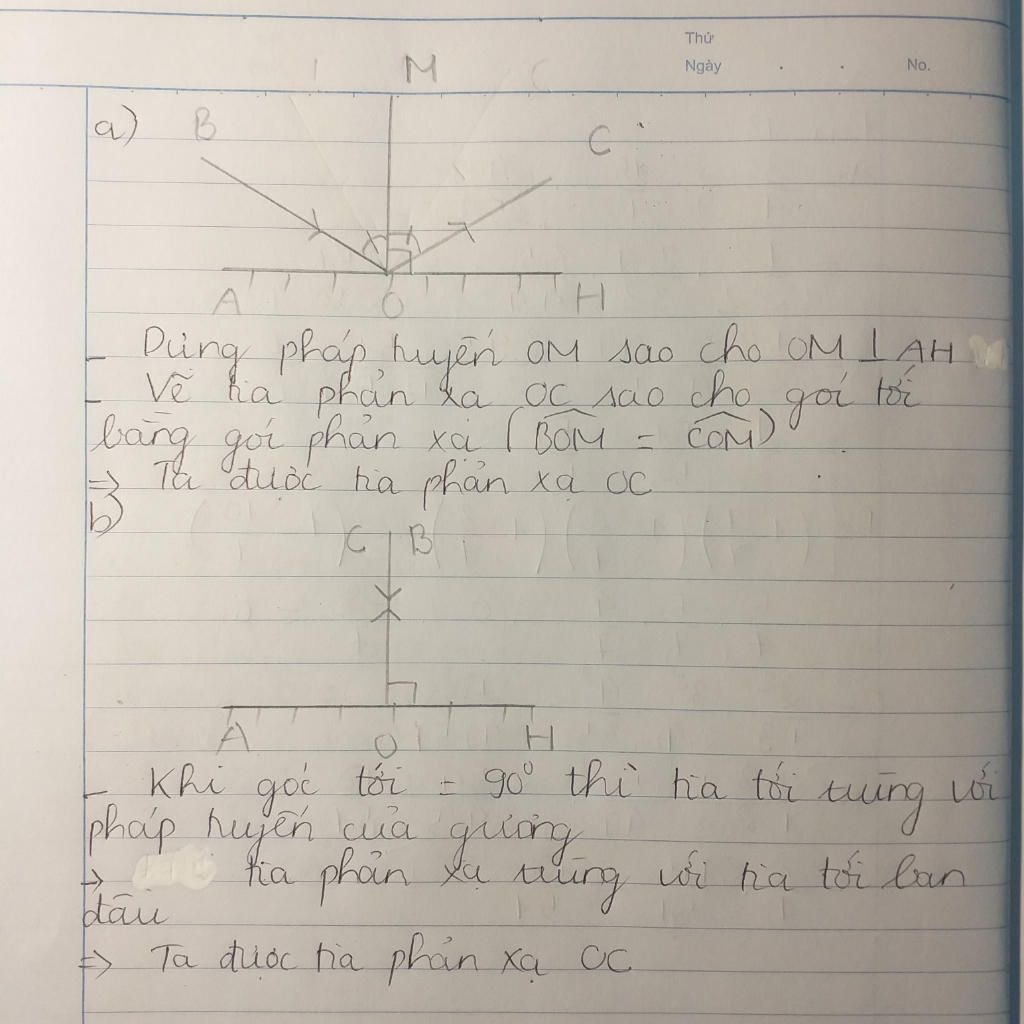 Thứ
Ngày . . No.
M
a) B C
A O H
- Dựng pháp tuyến OM sao cho OM ⊥ AH
- Vẽ tia phản xạ OC sao cho gói tới
bằng gói phản xạ (BOM = COM)
=> Ta được tia phản xạ OC
b)
C B
A O H
- Khi góc tới = 90° thì tia tới trùng với
pháp tuyến của gương
-> tia phản xạ trùng với tia tới ban
đầu
=> Ta được tia phản xạ OC